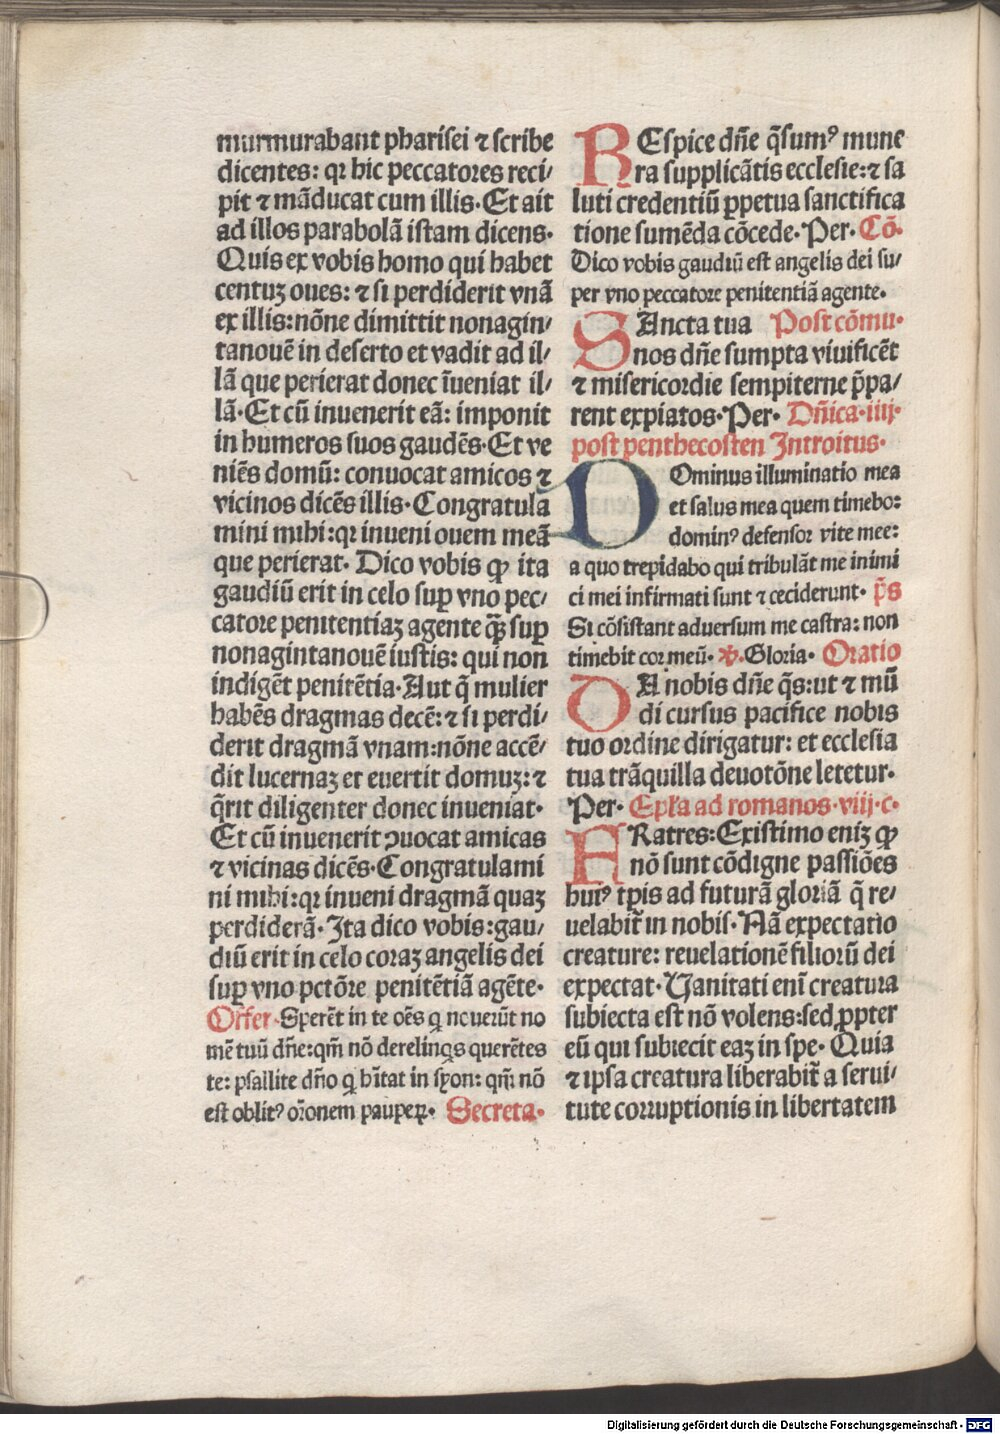 murmurabant pharisei ⁊ scribe
dicentes: qꝛ hic peccatores reci/
pit ⁊ māducat cum illis. Et ait
ad illos parabolā istam dicens.
Quis ex vobis homo qui habet
centuꝫ oues: ⁊ si perdiderit vnā
ex illis: nōne dimittit nonagin/
tanouē in deserto et vadit ad il/
lā que perierat donec īueniat il/
lā. Et cū inuenerit eā: imponit
in humeros suos gaudēs. Et ve
niēs domū: conuocat amicos ⁊
vicinos dicēs illis. Congratula
mini mihi: qꝛ inueni ouem meā
que perierat. Dico vobis ꝙ ita
gaudiū erit in celo suꝑ vno pec/
catore penitentiaꝫ agente q̄ꝫ suꝑ
nonagintanouē iustis: qui non
indigēt penitētia. Aut q̄ mulier
habēs dragmas decē: ⁊ si perdi/
derit dragmā vnam: nōne accē/
dit lucernaꝫ et euertit domuꝫ: ⁊
q̄rit diligenter donec inueniat.
Et cū inuenerit ꝯuocat amicas
⁊ vicinas dicēs. Congratulami
ni mihi: qꝛ inueni dragmā quaꝫ
perdiderā. Ita dico vobis: gau/
diū erit in celo coraꝫ angelis dei
suꝑ vno pctōre penitētiā agēte.
Offer. Sperēt in te oēs q̇ nouerūt no
mē tuū dn̄e: qm̄ nō derelinq̇s querētes
te: psallite dn̄o q̇ hītat in syon: qm̄ nō
est oblitꝰ orōnem pauperꝝ. Secreta.
REspice dn̄e q̄sumꝰ mune
ra supplicātis ecclesie: ⁊ sa
luti credentiū ꝑpetua sanctifica
tione sumēda cōcede. Per. Cō.
Dico vobis gaudiū est angelis dei su/
per vno peccatore penitentiā agente.
SAncta tua Post cōmu.
nos dn̄e sumpta viuificēt
⁊ misericordie sempiterne p̄pa/
rent expiatos. Per. Dn̄ica. iiij.
post penthecosten Introitus.
DOminus illuminatio mea
et salus mea quem timebo:
dominꝰ defensor vite mee:
a quo trepidabo qui tribulāt me inimi
ci mei infirmati sunt ⁊ ceciderunt. p̄s
Si cōsistant aduersum me castra: non
timebit cor meū. ℣. Gloria. Oratio
DA nobis dn̄e q̄s: ut ⁊ mū
di cursus pacifice nobis
tuo ordine dirigatur: et ecclesia
tua trāquilla deuotōne letetur.
Per. Ep̄la ad romanos. viij. c.
FRatres: Existimo eniꝫ ꝙ
nō sunt cōdigne passiōes
huiꝰ tp̄is ad futurā gloriā q̄ re/
uelabit̄ in nobis. Nā expectatio
creature: reuelationē filiorū dei
expectat. Vanitati enī creatura
subiecta est nō volens: sed ꝓpter
eū qui subiecit eaꝫ in spe. Quia
⁊ ipsa creatura liberabit̄ a serui/
tute corruptionis in libertatem
Digitalisierung gefördert durch die Deutsche Forschungsgemeinschaft - DFG